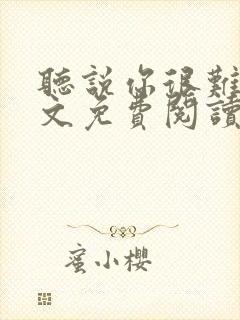 聽說你很難
文免費閱讀
蜜小櫻